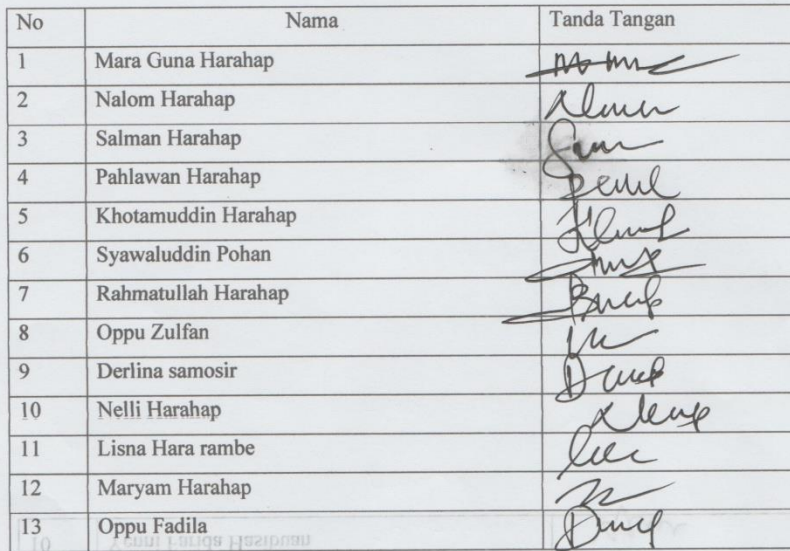 No Nama Tanda Tangan
1 Mara Guna Harahap
2 Nalom Harahap
3 Salman Harahap
4 Pahlawan Harahap
5 Khotamuddin Harahap
6 Syawaluddin Pohan
7 Rahmatullah Harahap
8 Oppu Zulfan
9 Derlina samosir
10 Nelli Harahap
11 Lisna Hara rambe
12 Maryam Harahap
13 Oppu Fadila